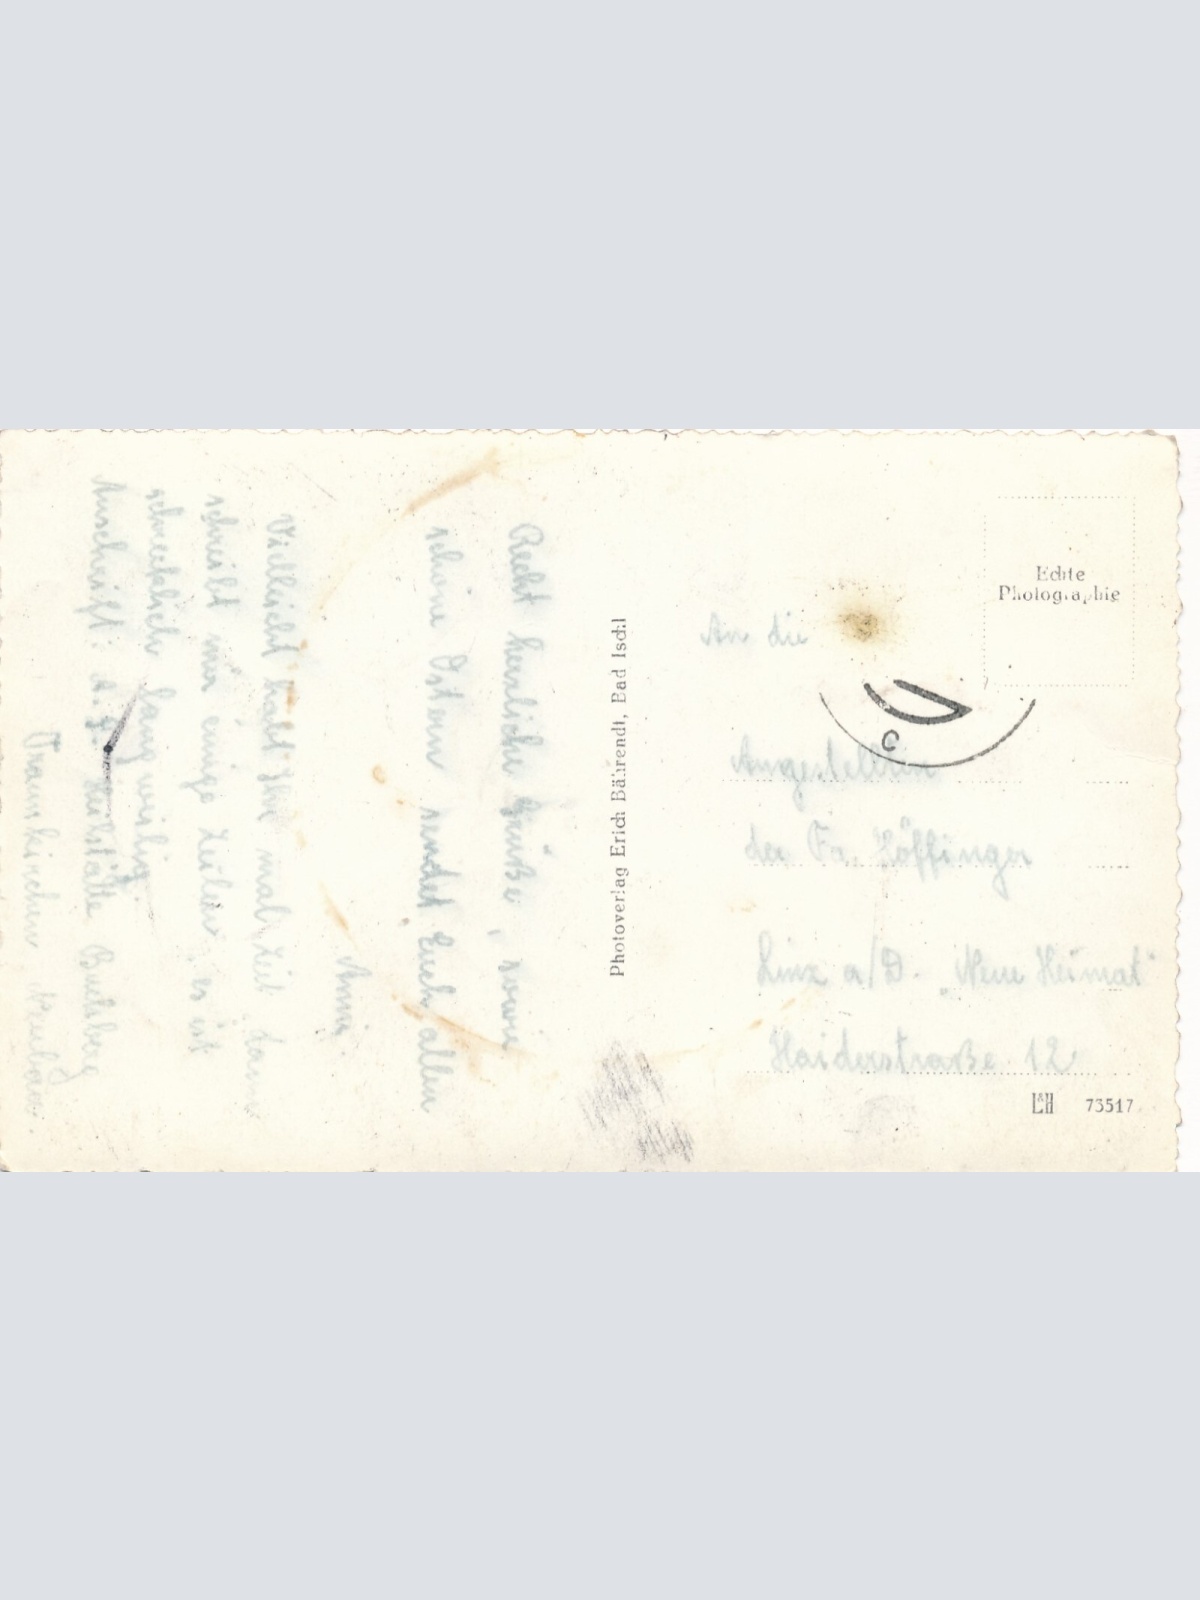 Recht herzliche Grüße, sowie
schöne Ostern sendet Euch allen
Anni
Vielleicht habt Ihr mal Zeit dann
schreibt mir einige Zeilen, es ist
schrecklich langweilig.
Anschrift: Heilstätte Buchberg
Traunkirchen
Photoverlag Erich Bährendt, Bad Ischl
Echte
Photographie
An die
Angestellten
der Fa. Höffinger
Linz a/D. "Neue Heimat"
Haiderstraße 12
L&H 73517